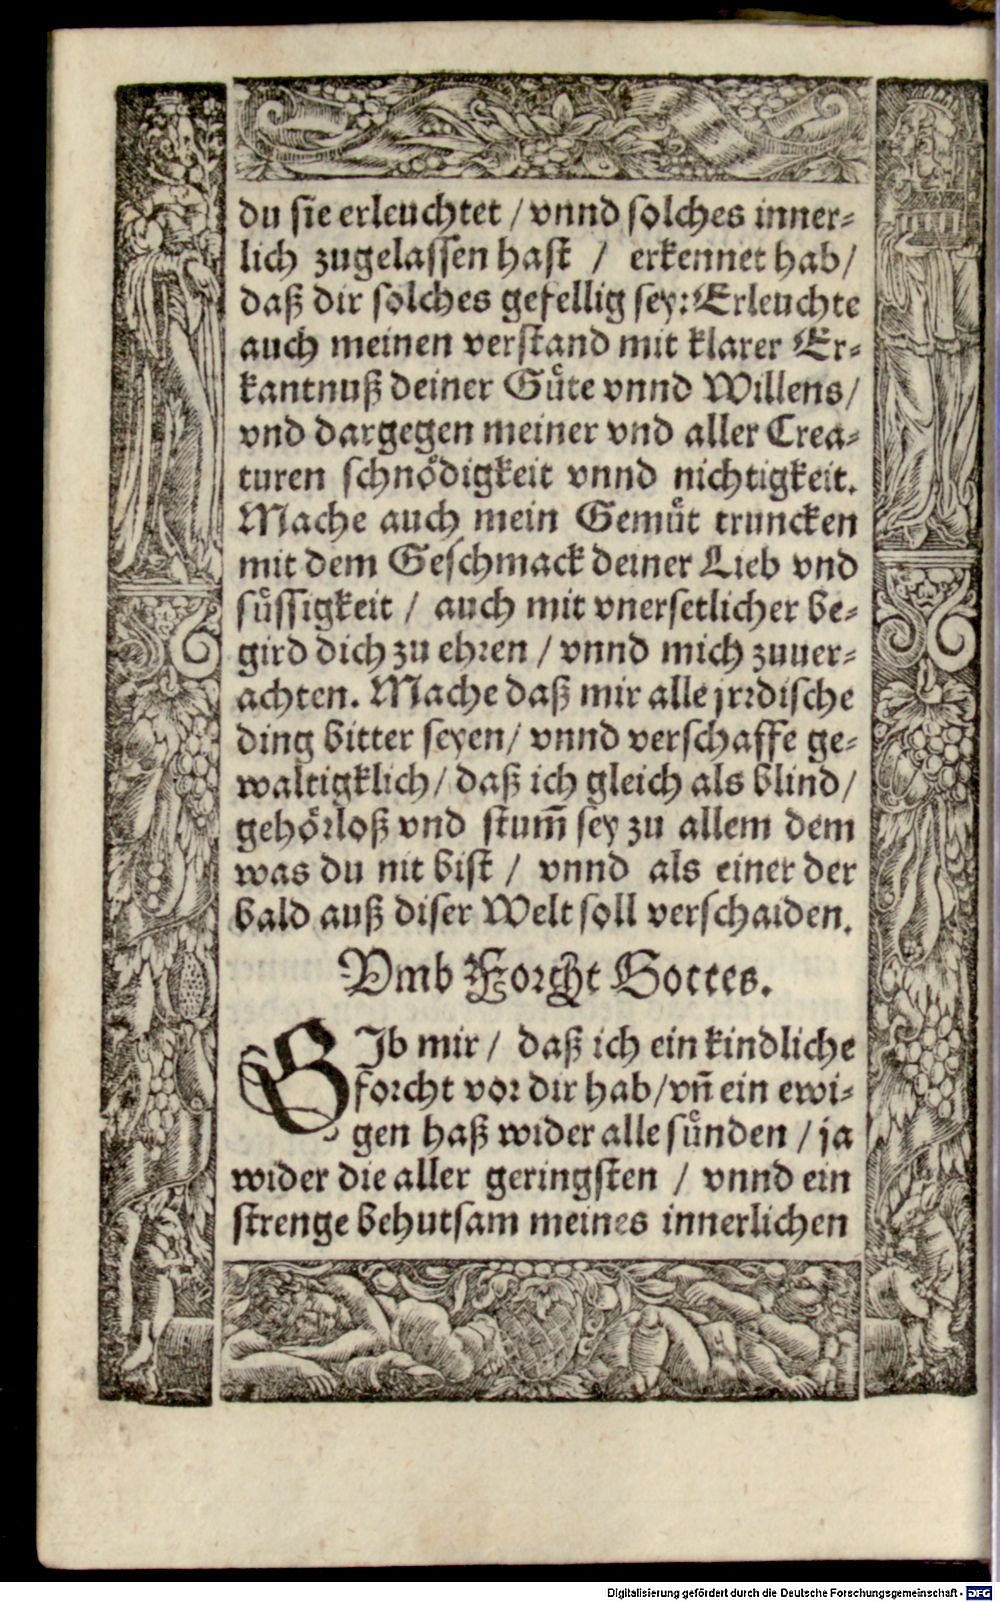 du sie erleuchtet / vnnd solches inner-
lich zugelassen hast / erkennet hab /
daß dir solches gefellig sey: Erleuchte
auch meinen verstand mit klarer Er-
kantnuß deiner Guͤte vnnd Willens /
vnd dargegen meiner vnd aller Crea-
turen schnoͤdigkeit vnnd nichtigkeit.
Mache auch mein Gemuͤt truncken
mit dem Geschmack deiner Lieb vnd
suͤssigkeit / auch mit vnersetlicher be-
gird dich zu ehren / vnnd mich zuuer-
achten. Mache daß mir alle jrrdische
ding bitter seyen / vnnd verschaffe ge-
waltigklich / daß ich gleich als blind /
gehoͤrloß vnd stum̃ sey zu allem dem
was du nit bist / vnnd als einer der
bald auß diser Welt soll verschaiden.
Vmb Forcht Gottes.
GJb mir / daß ich ein kindliche
forcht vor dir hab / vñ ein ewi-
gen haß wider alle suͤnden / ja
wider die aller geringsten / vnnd ein
strenge behutsam meines innerlichen
Digitalisierung gefördert durch die Deutsche Forschungsgemeinschaft - DFG